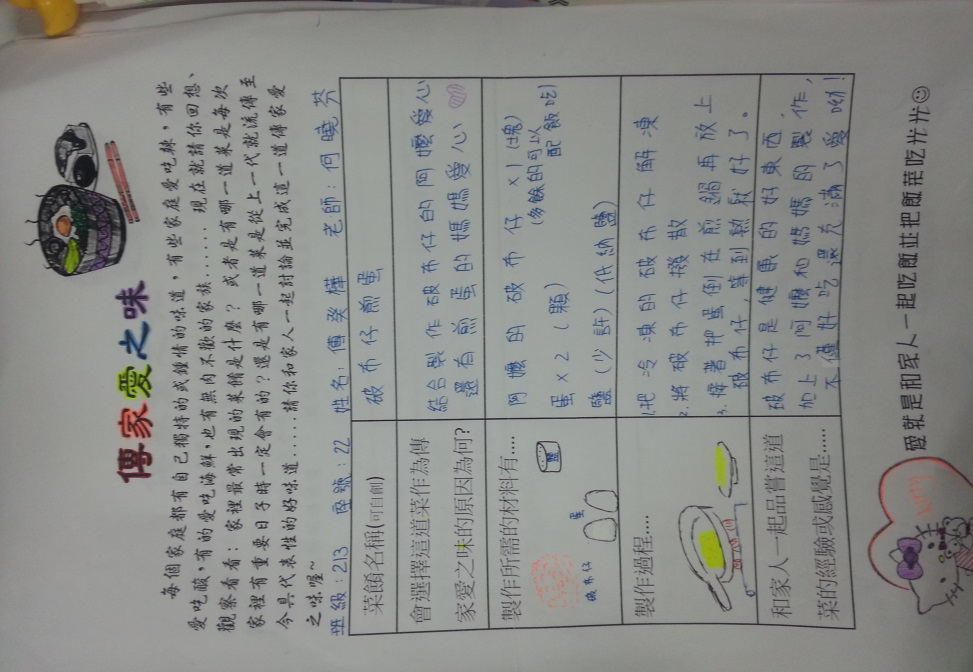 傳家愛之味
每個家庭都有自己獨特的或鍾情的味道，有些家庭愛吃辣，有些
愛吃酸，有的愛吃海鮮，也有無肉不歡的家族……. 現在就請你回想、
觀察看看：家裡最常出現的菜餚是什麼？或者是有哪一道菜是每次
家裡有重要日子時一定會有的？還是有哪一道菜是從上一代就流傳至
今具代表性的好味道…..請你和家人一起討論並完成這一道傳家愛
之味喔~
班級：213 座號：22 姓名：傅癸樺 老師：何曉芬
菜餚名稱(可自創)
破布仔煎蛋
會選擇這道菜作為傳
家愛之味的原因為何?
結合製作破布仔的阿嬤愛心
還有煎蛋的媽媽愛心
製作所需的材料有….
鹽
蛋
破布仔
阿嬤的破布仔 x1(塊)
(多餘的可以
配飯吃)
蛋x2(顆)
鹽(少許)(低納鹽)
製作過程….
1.把冷凍的破布仔解凍
2.將破布仔撥散
3.接著把蛋倒在煎鍋再放上
破布仔,等到熟就好了。
和家人一起品嘗這道
菜的經驗或感覺是…..
破布仔是健康的好東西,
加上了阿嬤和媽媽的製作,
不僅好吃還充滿了愛呦!
愛就是和家人一起吃飯並把飯菜吃光光☺